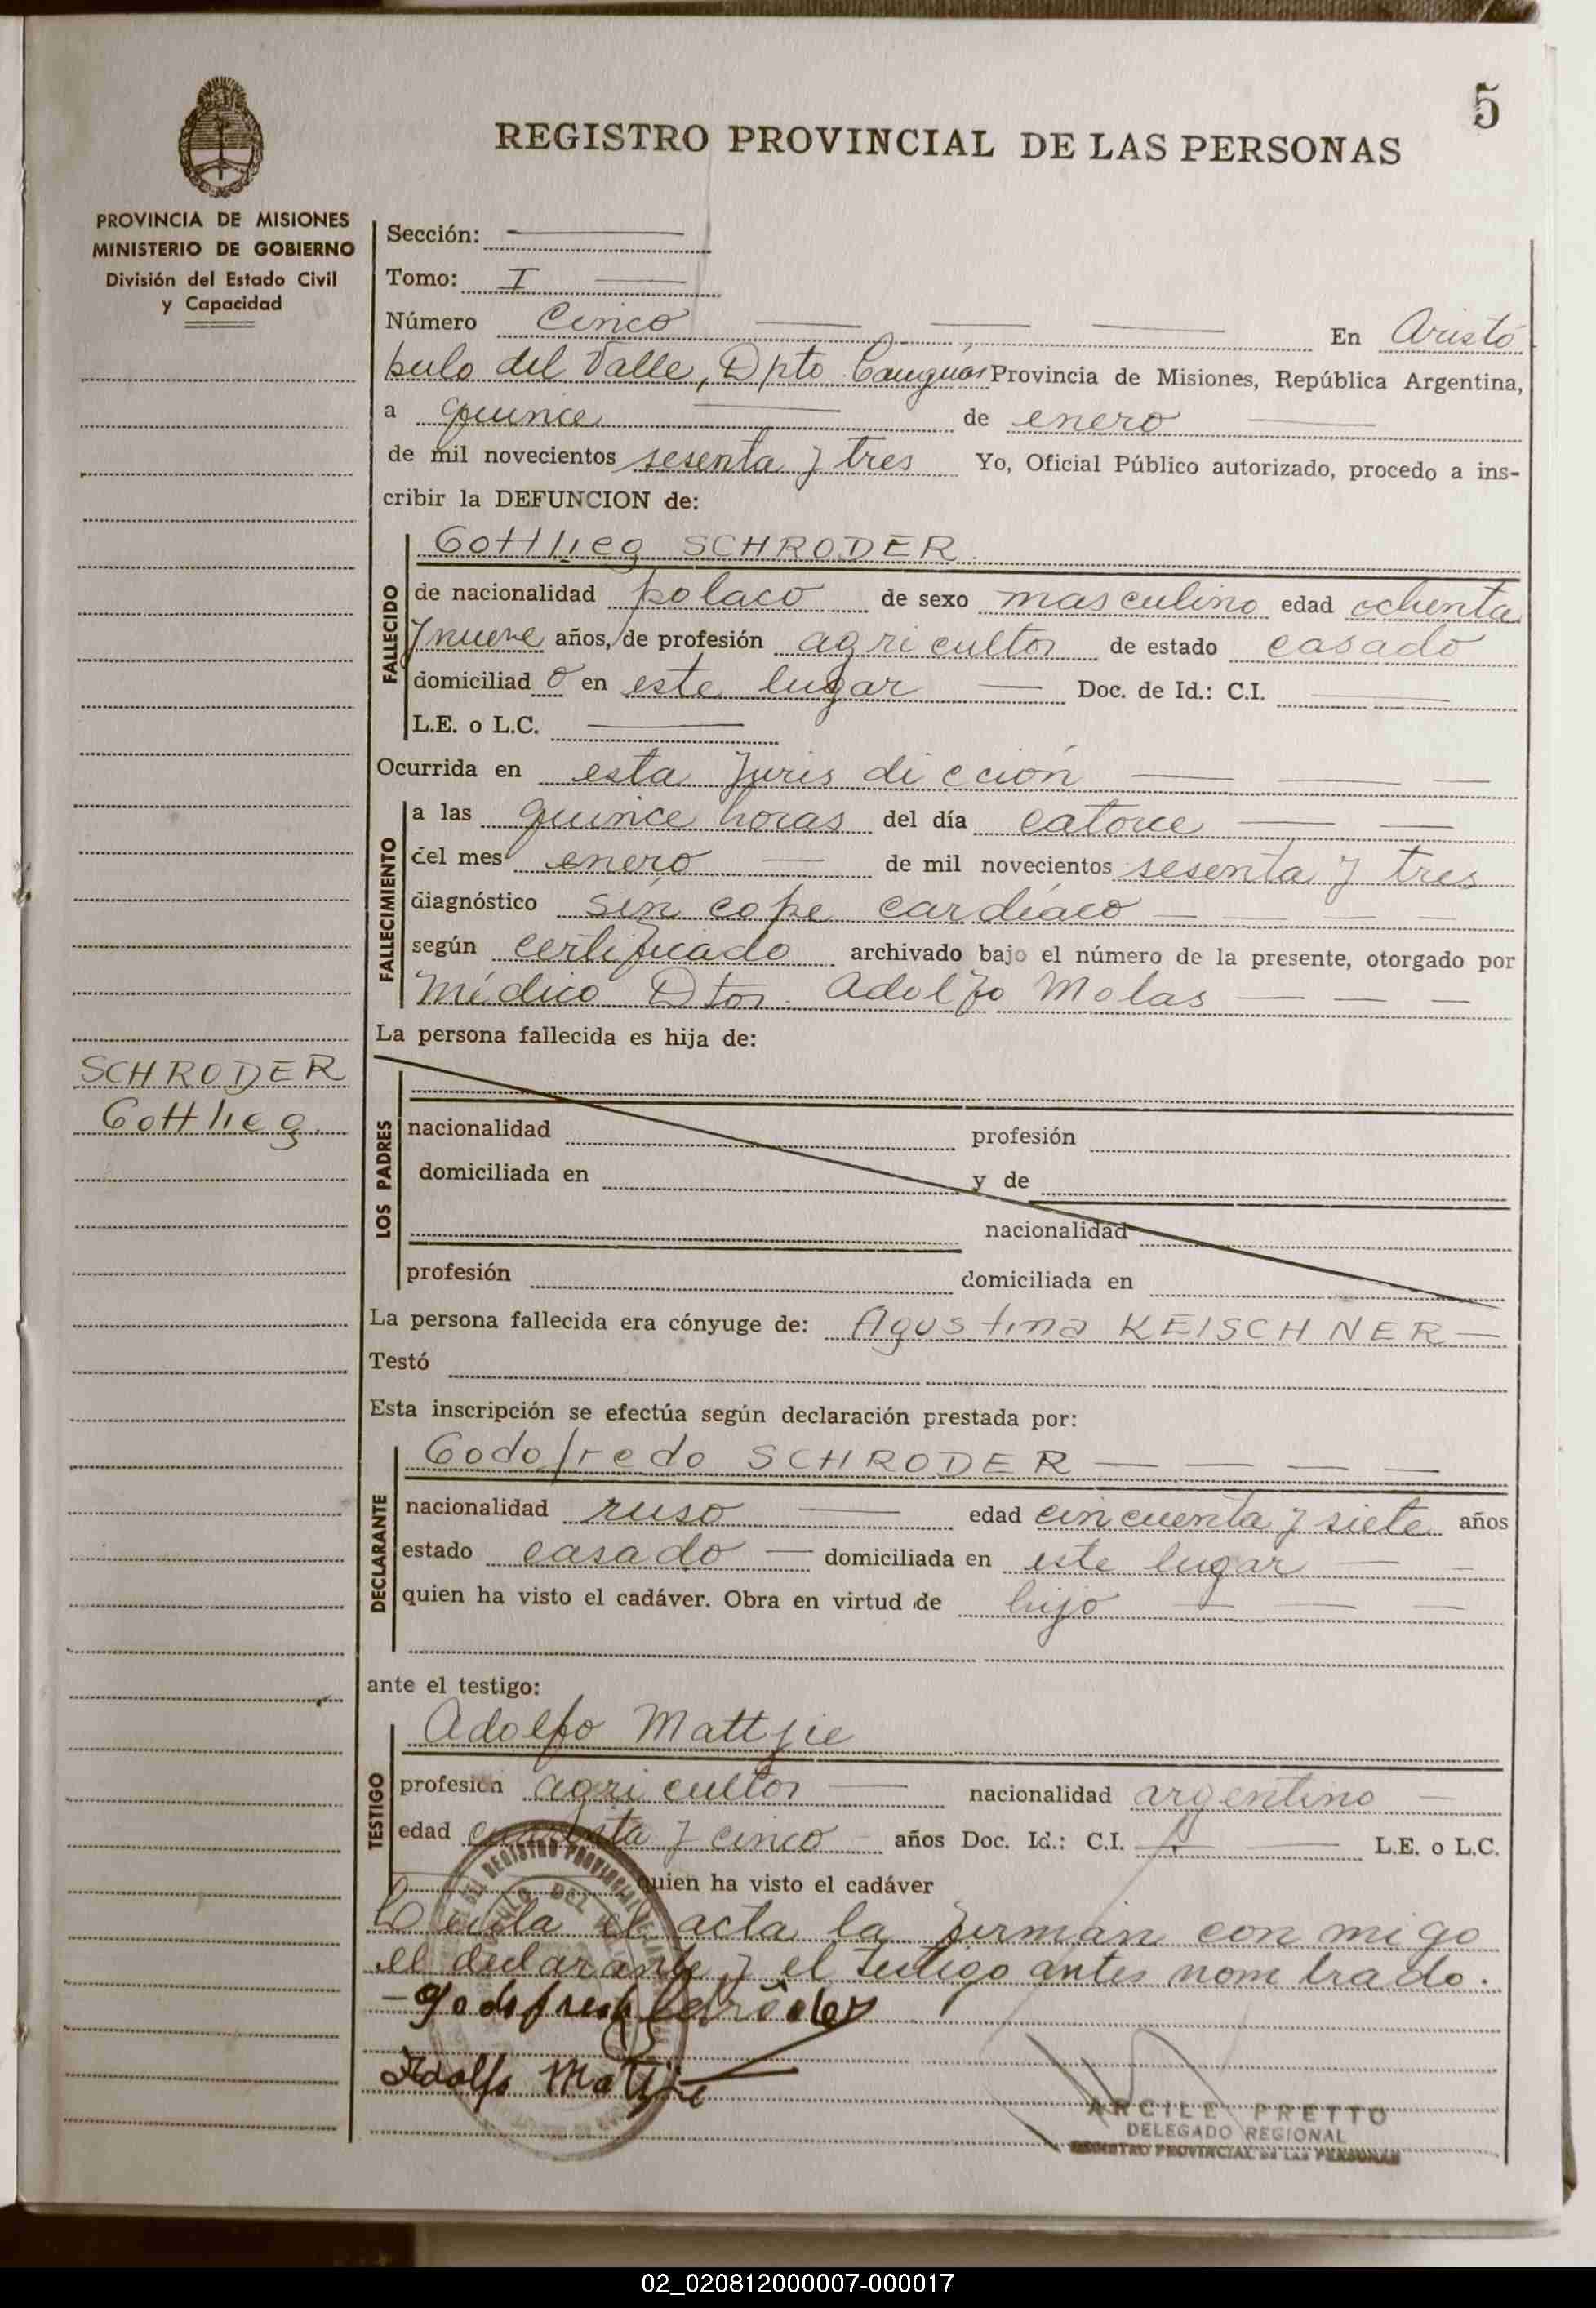 5
REGISTRO PROVINCIAL DE LAS PERSONAS
PROVINCIA DE MISIONES
MINISTERIO DE GOBIERNO
División del Estado Civil
y Capacidad
Sección:
Tomo: I
Número Cinco En Aristó
bulo del Valle, Dpto Cainguás Provincia de Misiones, República Argentina,
a quince de enero
de mil novecientos sesenta y tres Yo, Oficial Público autorizado, procedo a ins-
cribir la DEFUNCION de:
FALLECIDO
Gottlieg SCHRODER
de nacionalidad polaco de sexo masculino edad ochenta
y nueve años, de profesión agricultor de estado casado
domiciliad o en este lugar Doc. de Id.: C.I.
L.E. o L.C.
Ocurrida en esta Jurisdicción
FALLECIMIENTO
a las quince horas del día catorce
del mes enero de mil novecientos sesenta y tres
diagnóstico sincope cardíaco
según certificado archivado bajo el número de la presente, otorgado por
Médico Dtor. Adolfo Molas
La persona fallecida es hija de:
SCHRODER
Gottlieg
LOS PADRES
nacionalidad profesión
domiciliada en y de
nacionalidad
profesión domiciliada en
La persona fallecida era cónyuge de: Agustina KEISCHNER
Testó
Esta inscripción se efectúa según declaración prestada por:
DECLARANTE
Godofredo SCHRODER
nacionalidad ruso edad cincuenta y siete años
estado casado domiciliada en este lugar
quien ha visto el cadáver. Obra en virtud de hijo
ante el testigo:
TESTIGO
Adolfo Mattjie
profesión agricultor nacionalidad argentino
edad cuarenta y cinco años Doc. Id.: C.I. L.E. o L.C.
quien ha visto el cadáver
Leída el acta la firman con migo
el declarante y el testigo antes nombrado.
Adolfo
ARCILE PRETTO
DELEGADO REGIONAL
REGISTRO PROVINCIAL DE LAS PERSONAS
02_020812000007-000017